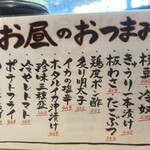 お昼のおつまみ
枝豆
冷奴
きゅうり一本漬け
板わさ
たこぶつ
鶏皮ポン酢
炙り明太子
イカの塩辛
ホタルイカ沖漬け
珍味三種盛
冷やしトマト
ポテトフライ